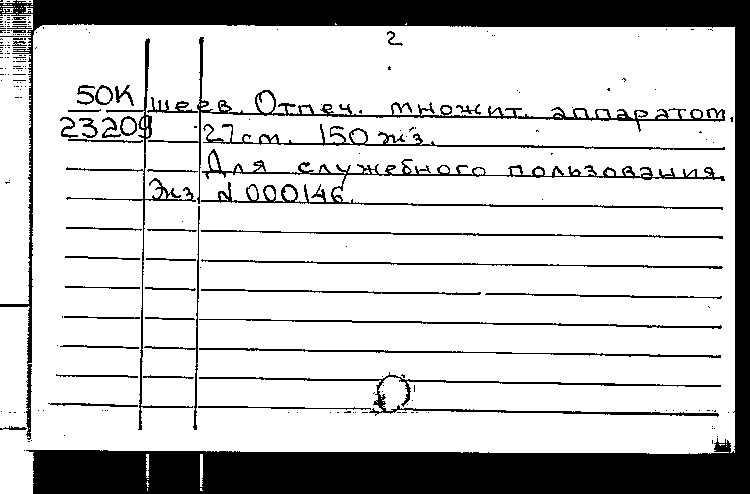 2
50К шеев. Отпеч. множит. аппаратом.
23209 27 см. 150 экз.
Для служебного пользования.
Экз. № 000146.